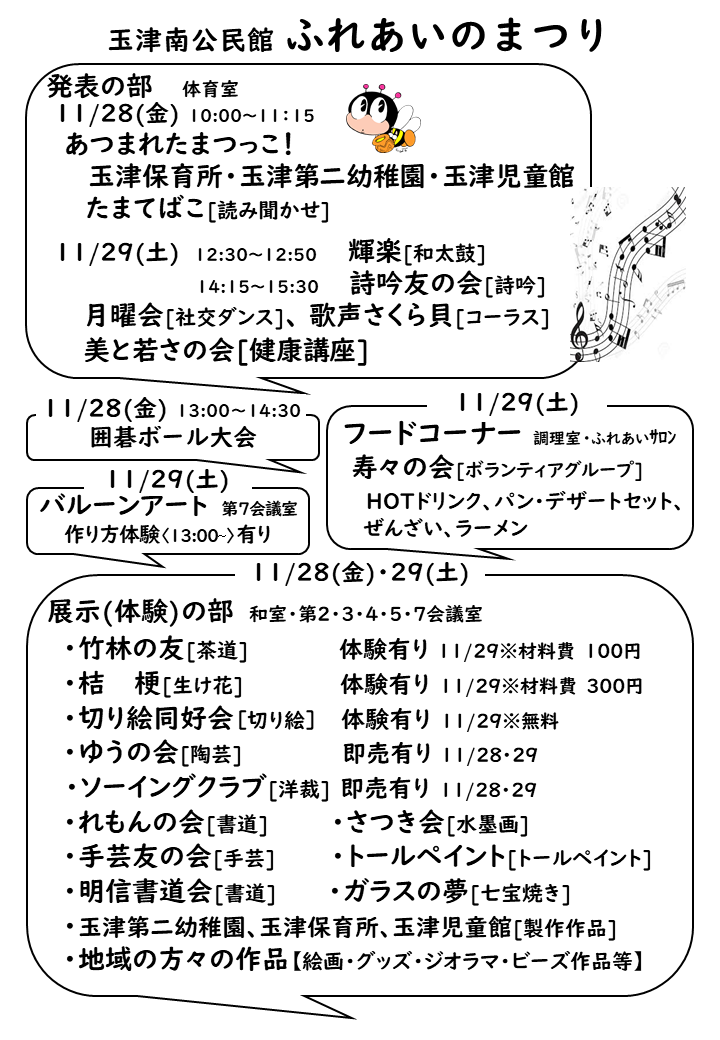 玉津南公民館 ふれあいのまつり
発表の部 体育室
11/28(金) 10:00～11:15
あつまれたまつっこ！
玉津保育所・玉津第二幼稚園・玉津児童館
たまてばこ[読み聞かせ]
11/29(土) 12:30～12:50 輝楽[和太鼓]
14:15～15:30 詩吟友の会[詩吟]
月曜会[社交ダンス]、歌声さくら貝[コーラス]
美と若さの会[健康講座]
11/28(金) 13:00～14:30
囲碁ボール大会
11/29(土)
バルーンアート 第7会議室
作り方体験〈13:00~〉有り
11/29(土)
フードコーナー 調理室・ふれあいｻﾛﾝ
寿々の会[ボランティアグループ]
HOTドリンク、パン・デザートセット、
ぜんざい、ラーメン
11/28(金)・29(土)
展示(体験)の部 和室・第2・3・4・5・7会議室
・竹林の友[茶道] 体験有り 11/29※材料費 100円
・桔　梗[生け花] 体験有り 11/29※材料費 300円
・切り絵同好会[切り絵] 体験有り 11/29※無料
・ゆうの会[陶芸] 即売有り 11/28・29
・ソーイングクラブ[洋裁] 即売有り 11/28・29
・れもんの会[書道] ・さつき会[水墨画]
・手芸友の会[手芸] ・トールペイント[トールペイント]
・明信書道会[書道] ・ガラスの夢[七宝焼き]
・玉津第二幼稚園、玉津保育所、玉津児童館[製作作品]
・地域の方々の作品【絵画・グッズ・ジオラマ・ビーズ作品等】